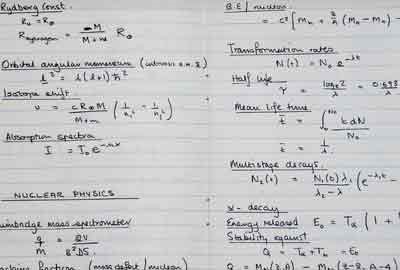 Rydberg Const.
R₀ = R∞
R_Hydrogen = M / (M + m) R∞
Orbital angular momentum (intrinsic
l² = l(l+1)ħ²
Isotope shift.
ν = cR∞M / (M+m) (1/n₁² − 1/n₂²)
Absorption spectra
I = I₀e^-
NUCLEAR PHYSICS
mass spectrometer
q/M = 2V / B²DS
fraction (mass defect / nucleon)
B.E / nucleon
= c² [Mₙ + Z/A (Mₕ − Mₙ) −
Transformation rates
N(t) = N₀ e^-λt
Half life
τ = logₑ2 / λ = 0.693 / λ
Mean life time
t̄ = ∫₀^N₀ t dN / N₀
t̄ = 1/λ
Multistage decays.
N₂(t) = N₁(0) λ₁ / (λ₂ − λ₁) (e^-λ₁t −
α - decay
Energy released E₀ = Tα (1 +
Stability against
Q = Tα + Tₕ = E₀
Q = Mₙ(Z,A) − Mₙ(Z-2, A-4)